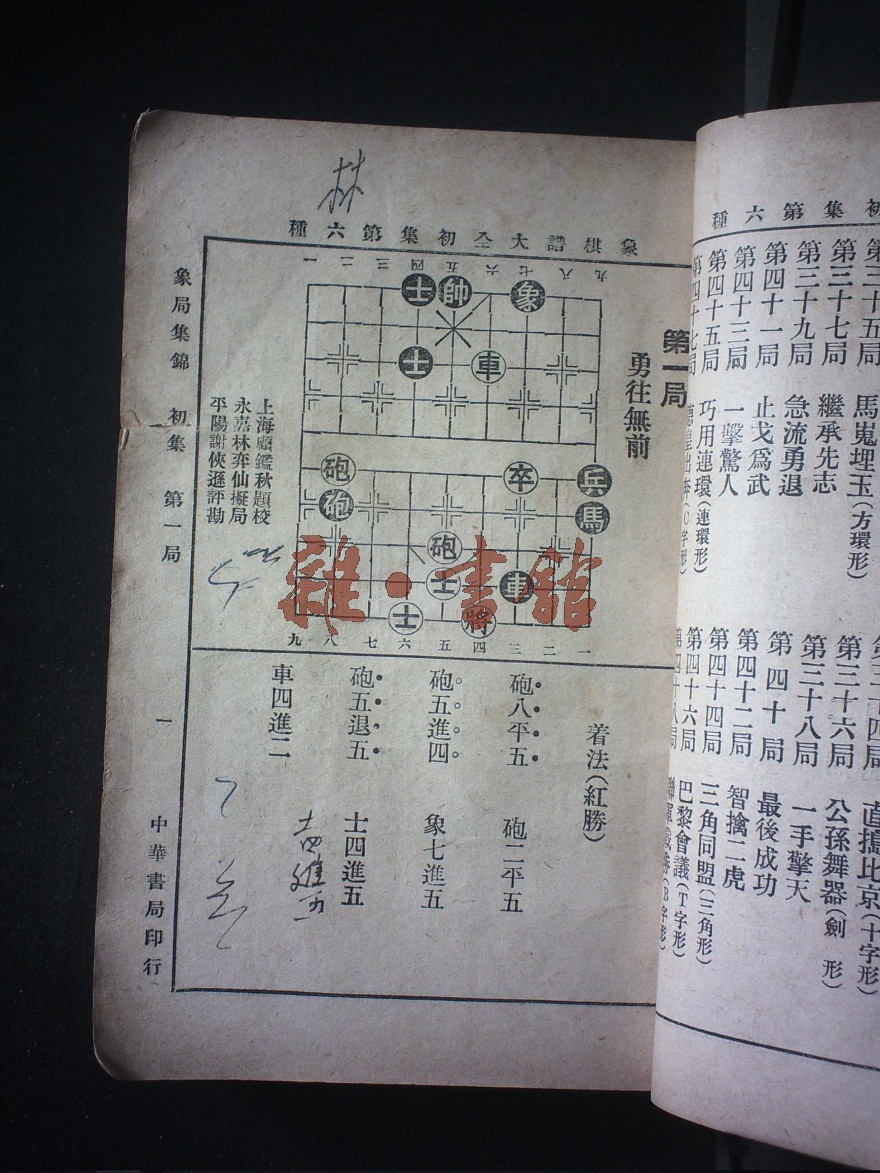 林
象棋譜大全初集第六種
第一局
勇往無前
一二三四五六七八九
士帥象
士車
砲卒兵
砲馬
砲
士車
士將
九八七六五四三二一
上海顧鑑秋題校
永嘉林弈仙擬局
平陽謝俠遜評勘
着法(紅勝)
砲八平五 砲二平五
砲五進四 象七進五
砲五退五 士四進五
車四進二
象局集錦 初集 第一局
一
中華書局印行
雜·書館
初集第六種
第三十五局 馬嵬埋玉(方環形)
第三十七局 繼承先志
第三十九局 急流勇退
第四十一局 止戈爲武
第四十三局 一擊驚人
第四十五局 巧用連環(連環形)
第四十七局
直搗比京(十字形)
第三十六局 公孫舞器(劍形)
第三十八局 一手擎天
第四十局 最後成功
第四十二局 智擒二虎
第四十四局 三角同盟(三角形)
第四十六局 巴黎會議(T字形)
第四十八局